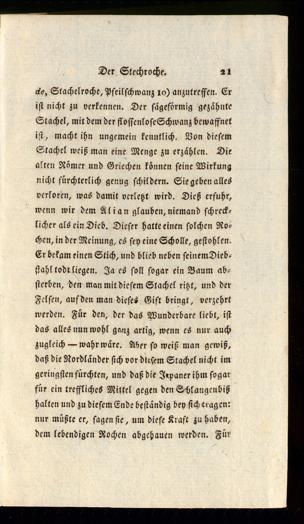 Der Stechroche. 21
do, Stachelroche, Pfeilschwanz 10) anzutreffen. Er
ist nicht zu verkennen. Der sägeförmig gezähnte
Stachel, mit dem der flossenlose Schwanz bewaffnet
ist, macht ihn ungemein kenntlich. Von diesem
Stachel weiß man eine Menge zu erzählen. Die
alten Römer und Griechen können seine Wirkung
nicht fürchterlich genug schildern. Sie geben alles
verloren, was damit verletzt wird. Dieß erfuhr,
wenn wir dem Alian glauben, niemand schreck-
licher als ein Dieb. Dieser hatte einen solchen Ro-
chen, in der Meinung, es sey eine Scholle, gestohlen.
Er bekam einen Stich, und blieb neben seinem Dieb-
stahl todt liegen. Ja es soll sogar ein Baum ab-
sterben, den man mit diesem Stachel ritzt, und der
Felsen, auf den man dieses Gift bringt, verzehrt
werden. Für den, der das Wunderbare liebt, ist
das alles nun wohl ganz artig, wenn es nur auch
zugleich — wahr wäre. Aber so weiß man gewiß,
daß die Nordländer sich vor diesem Stachel nicht im
geringsten fürchten, und daß die Japaner ihn sogar
für ein treffliches Mittel gegen den Schlangenbiß
halten und zu diesem Ende beständig bey sich tragen:
nur müßte er, sagen sie, um diese Kraft zu haben,
dem lebendigen Rochen abgehauen werden. Für